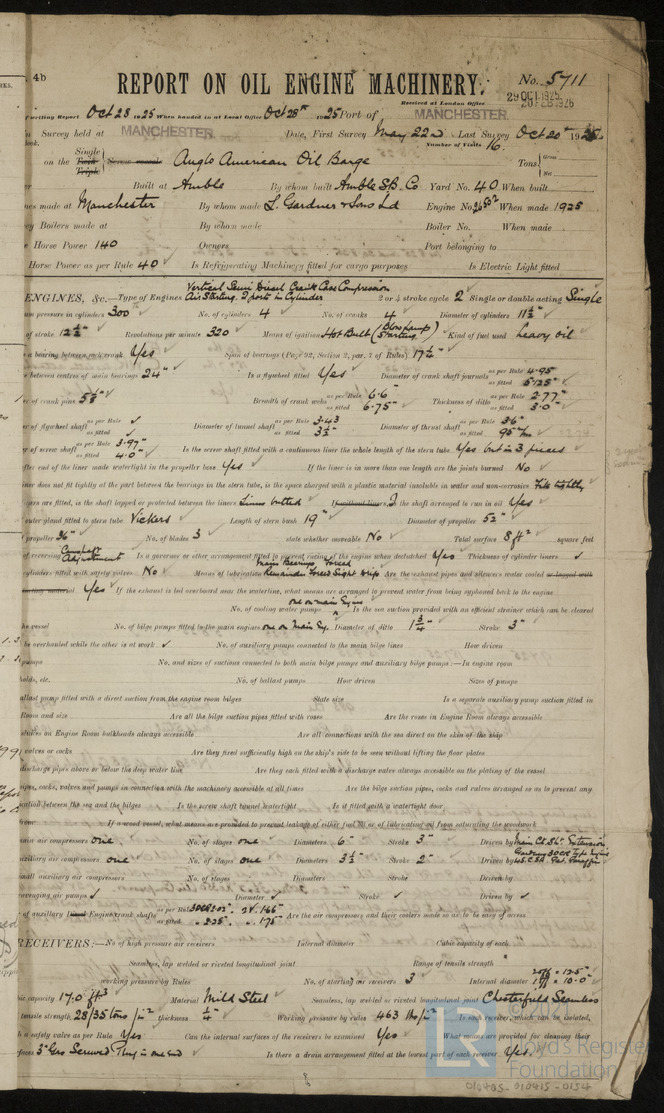 4b
REPORT ON OIL ENGINE MACHINERY.
No. 5711
Received at London Office
29 OCT 1925
20 FEB 1926
writing Report Oct 28 1925 When handed in at Local Office Oct 28th 1925 Port of MANCHESTER
Survey held at MANCHESTER Date, First Survey May 22nd Last Survey Oct 20th 19
Number of Visits 16
on the Single Twin Triple Screw vessel Anglo American Oil Barge Tons Gross Net
Built at Amble By whom built Amble SB. Co Yard No. 40 When built
made at Manchester By whom made L. Gardner & Sons Ltd Engine No. When made 1925
Boilers made at By whom made Boiler No. When made
Horse Power 140 Owners Port belonging to
Horse Power as per Rule 40 Is Refrigerating Machinery fitted for cargo purposes Is Electric Light fitted
ENGINES, &c.—Type of Engines Vertical Semi Diesel Crank Case Compression Air Starting. 2 ports in Cylinder 2 or 4 stroke cycle 2 Single or double acting Single
pressure in cylinders 300 No. of cylinders 4 No. of cranks 4 Diameter of cylinders 11½"
of stroke 12½" Revolutions per minute 320 Means of ignition Hot Bulb (Blow Lamp Starting) Kind of fuel used Heavy oil
a bearing between each crank Yes Span of bearings (Page 92, Section 2, par. 7 of Rules) 17½"
between centres of main bearings 24" Is a flywheel fitted Yes Diameter of crank shaft journals as per Rule 4.95 as fitted 5.125"
of crank pins Breadth of crank webs as per Rule 6.6 as fitted 6.75" Thickness of ditto as per Rule 2.77 as fitted 3.0"
of flywheel shaft as per Rule as fitted Diameter of tunnel shaft as per Rule 3.43 as fitted 3½" Diameter of thrust shaft as per Rule 3.6 as fitted 95 m/m
of screw shaft as per Rule 3.97" as fitted 4.0" Is the screw shaft fitted with a continuous liner the whole length of the stern tube Yes but in 3 pieces
after end of the liner made watertight in the propeller boss Yes If the liner is in more than one length are the joints burned No
liner does not fit tightly at the part between the bearings in the stern tube, is the space charged with a plastic material insoluble in water and non-corrosive Fits tightly
liners are fitted, is the shaft lapped or protected between the liners Liners butted If without liners, Is the shaft arranged to run in oil Yes
outer gland fitted to stern tube Vickers Length of stern bush 19" Diameter of propeller 52"
propeller 36" No. of blades 3 state whether moveable No Total surface 8 ft² square feet
of reversing Camshaft Adjustment Is a governor or other arrangement fitted to prevent racing of the engine when declutched Yes Thickness of cylinder liners
cylinders fitted with safety valves No Means of lubrication Main Bearings Forced Remainder Forced Sight Drip Are the exhaust pipes and silencers water cooled or lagged with
material Yes If the exhaust is led overboard near the waterline, what means are arranged to prevent water from being syphoned back to the engine
No. of cooling water pumps one on main Engine Is the sea suction provided with an efficient strainer which can be cleared
the vessel No. of bilge pumps fitted to the main engines one on Main Eng. Diameter of ditto 1¾" Stroke 3"
be overhauled while the other is at work No. of auxiliary pumps connected to the main bilge lines How driven
pumps No. and sizes of suctions connected to both main bilge pumps and auxiliary bilge pumps:—In engine room
holds, etc. No. of ballast pumps How driven Sizes of pumps
ballast pump fitted with a direct suction from the engine room bilges State size Is a separate auxiliary pump suction fitted in
Room and size Are all the bilge suction pipes fitted with roses Are the roses in Engine Room always accessible
sluices on Engine Room bulkheads always accessible Are all connections with the sea direct on the skin of the ship
valves or cocks Are they fixed sufficiently high on the ship's side to be seen without lifting the floor plates
discharge pipes above or below the deep water line Are they each fitted with a discharge valve always accessible on the plating of the vessel
pipes, cocks, valves and pumps in connection with the machinery accessible at all times Are the bilge suction pipes, cocks and valves arranged so as to prevent any
communication between the sea and the bilges Is the screw shaft tunnel watertight Is it fitted with a watertight door
If a wood vessel, what means are provided to prevent leakage of either fuel oil or of lubricating oil from saturating the woodwork
main air compressors one No. of stages one Diameters 6" Stroke 3" Driven by Main Ck. Sht. Extension
auxiliary air compressors one No. of stages one Diameters 3½" Stroke 2" Driven by
small auxiliary air compressors No. of stages Diameters Stroke Driven by
scavenging air pumps Diameter Stroke Driven by
of auxiliary Engine crank shafts as per Rule as fitted Are the air compressors and their coolers made so as to be easy of access
RECEIVERS:—No. of high pressure air receivers Internal diameter Cubic capacity of each
Seamless, lap welded or riveted longitudinal joint Range of tensile strength
working pressure by Rules No. of starting air receivers 3 Internal diameter 2 off = 12.5" 1 off = 10.0"
capacity 17.0 ft³ Material Mild Steel Seamless, lap welded or riveted longitudinal joint Chesterfield Seamless
tensile strength 28/35 tons/□" thickness ¼" Working pressure by rules 463 lbs/□" Is each receiver, which can be isolated,
a safety valve as per Rule Yes Can the internal surfaces of the receivers be examined Yes What means are provided for cleaning their
surfaces 3" Gas Screwed Plug in one end Is there a drain arrangement fitted at the lowest part of each receiver Yes.
LR
Lloyd's Register
Foundation
010405-010415-0154